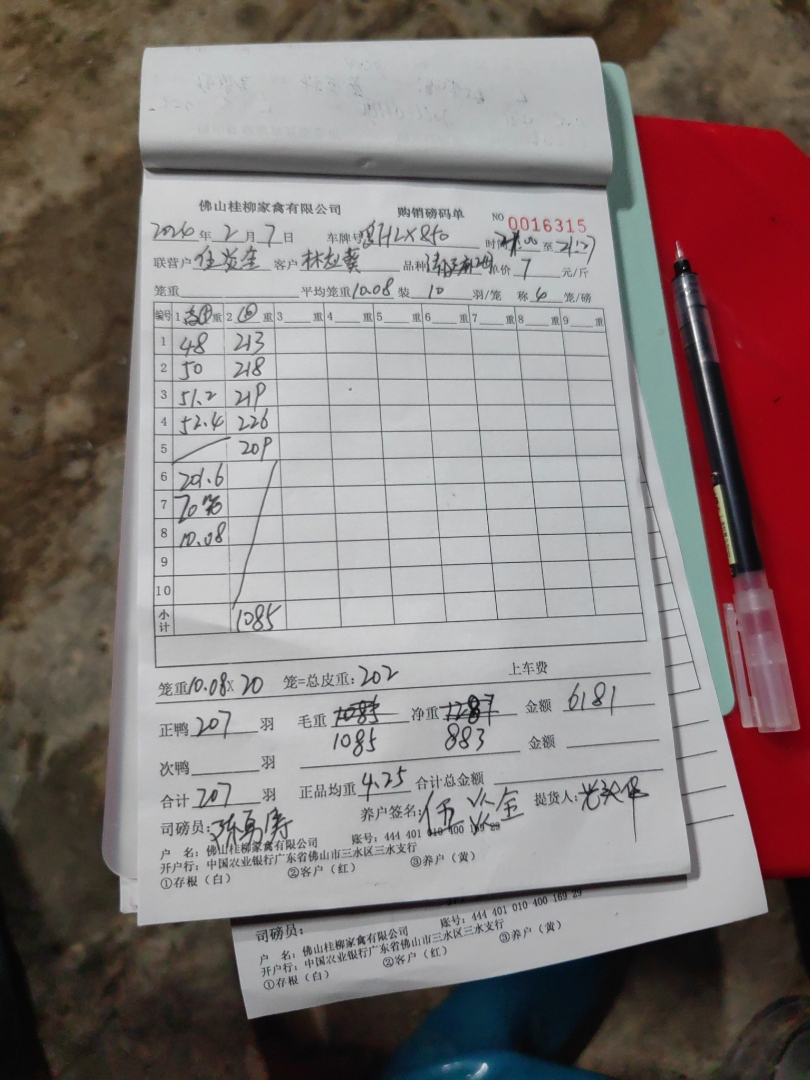 佛山桂柳家禽有限公司 购销磅码单 NO 0016315
2026年 2 月 7 日 车牌号 HLX850 时间 :00 至 21:27
联营户 客户 林 品种 单价 7 元/斤
笼重 平均笼重 10.08 装 10 羽/笼 称 4 笼/磅
编号 1 重 2 重 3 重 4 重 5 重 6 重 7 重 8 重 9 重
1 48 213
2 50 218
3 51.2 219
4 52.4 226
5 209
6 201.6
7 20
8 10.08
9
10
小计 1085
笼重10.08X 20 笼=总皮重: 202 上车费
正鸭 207 羽 毛重 1085 净重 1287 金额 6181
1085 883
次鸭 羽 金额
合计 207 羽 正品均重 4.25 合计总金额
司磅员: 养户签名: 提货人:
户 名: 佛山桂柳家禽有限公司 账号: 444 401 010 400 169 29
开户行: 中国农业银行广东省佛山市三水区三水支行
①存根（白） ②客户（红） ③养户（黄）
司磅员:
户 名: 佛山桂柳家禽有限公司 账号: 444 401 010 400 169 29
开户行: 中国农业银行广东省佛山市三水区三水支行
①存根（白） ②客户（红） ③养户（黄）